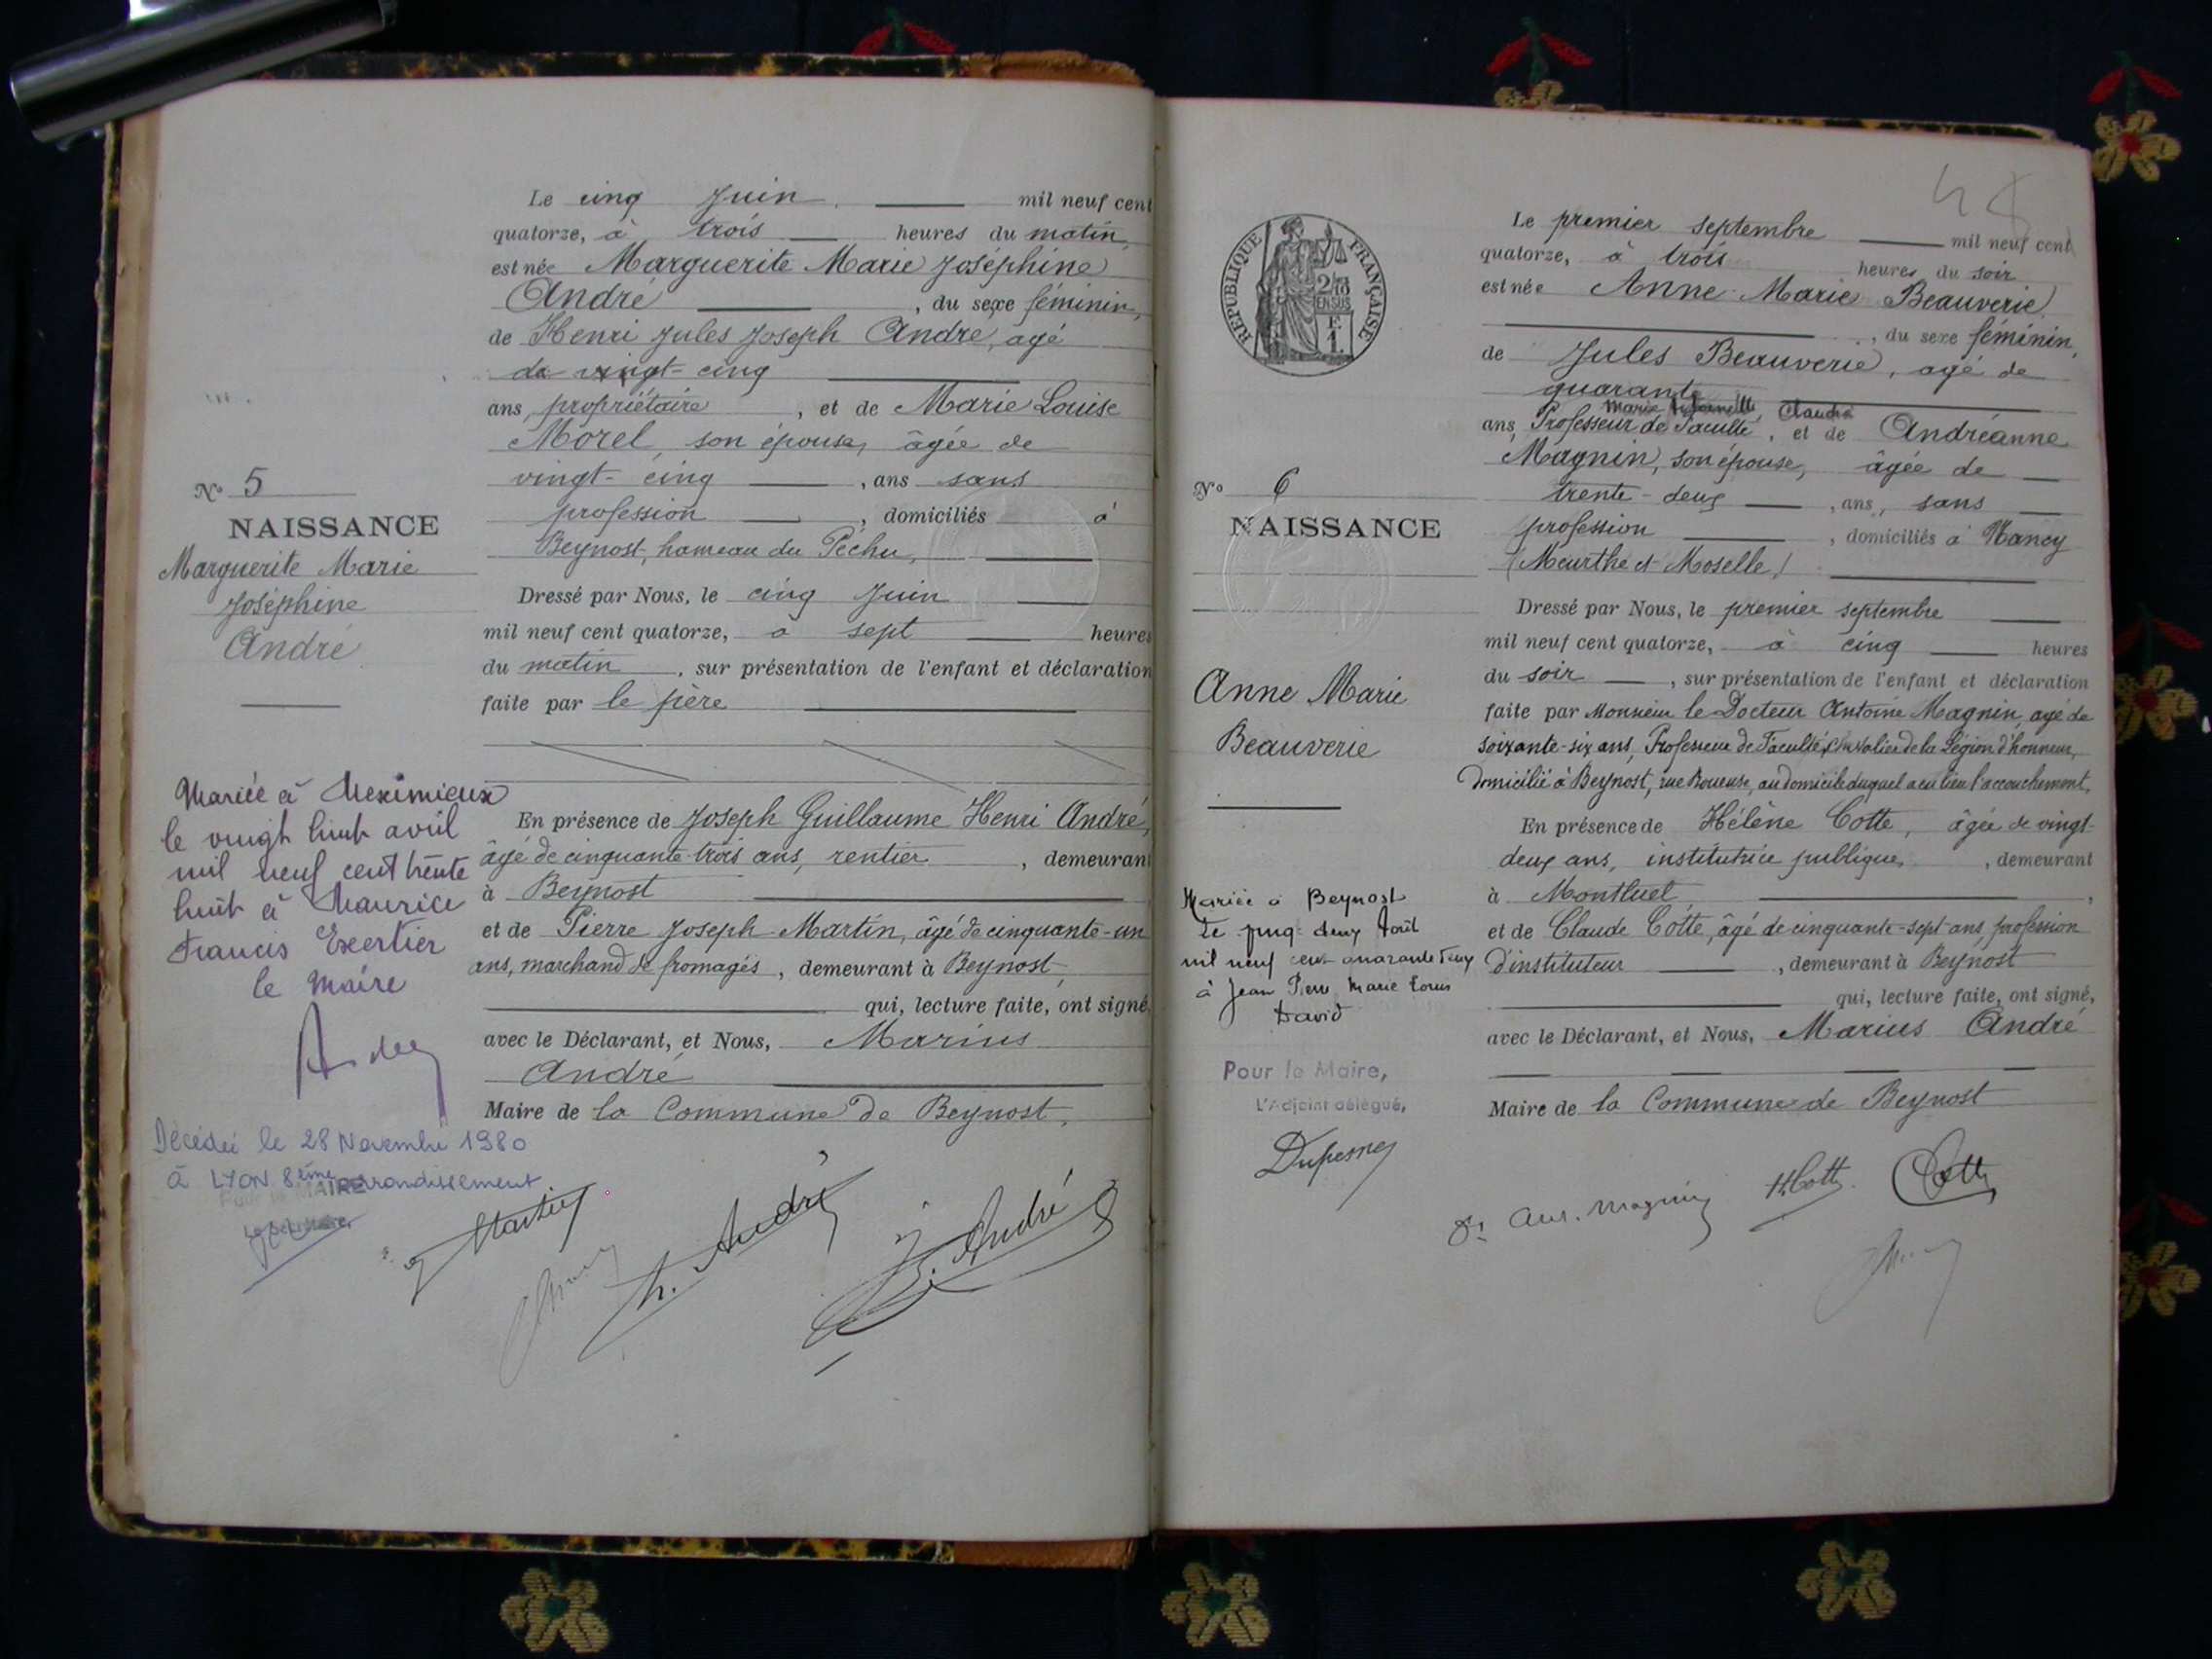 Le cinq Juin mil neuf cent
quatorze, à trois heures du matin,
est née Marguerite Marie Joséphine
André, du sexe féminin,
de Henri Jules Joseph André, agé
de vingt-cinq
ans, propriétaire, et de Marie Louise
Morel, son épouse, âgée de
vingt-cinq, ans sans
profession, domiciliés à
Beynost, hameau du Péchu,
Dressé par Nous, le cinq Juin
mil neuf cent quatorze, à sept heures
du matin, sur présentation de l'enfant et déclaration
faite par le père
En présence de Joseph Guillaume Henri André,
âgé de cinquante-trois ans, rentier, demeurant
à Beynost
et de Pierre Joseph Martin, âgé de cinquante-un
ans, marchand de fromages, demeurant à Beynost,
qui, lecture faite, ont signé,
avec le Déclarant, et Nous, Marius
André
Maire de la Commune de Beynost,
N° 5
NAISSANCE
Marguerite Marie
Joséphine
André
Mariée à Meximieux
le vingt huit avril
mil neuf cent trente
huit à Maurice
Francis Exertier
le Maire
Décédée le 28 Novembre 1980
à LYON 8ème arrondissement
Pour le MAIRE
Martin
h. André
J. André
RÉPUBLIQUE FRANÇAISE
2/10
EN SUS
F.
1.
Le premier septembre mil neuf cent
quatorze, à trois heures du soir
est née Anne-Marie Beauverie,
, du sexe féminin,
de Jules Beauverie, agé de
quarante
Marie Antoinette, Claudia
ans, Professeur de Faculté, et de Andréanne
Magnin, son épouse, âgée de
trente-deux, ans, sans
profession, domiciliés à Nancy
(Meurthe et Moselle)
Dressé par Nous, le premier septembre
mil neuf cent quatorze, à cinq heures
du soir, sur présentation de l'enfant et déclaration
faite par Monsieur le Docteur Antoine Magnin, agé de
soixante-six ans, Professeur de Faculté, chevalier de la Légion d'honneur,
domicilié à Beynost, rue Boueuse, au domicile duquel a eu lieu l'accouchement,
En présence de Hélène Cotte, âgée de vingt-
deux ans, institutrice publique, demeurant
à Montluel,
et de Claude Cotte, âgé de cinquante-sept ans, profession
d'instituteur, demeurant à Beynost
qui, lecture faite, ont signé,
avec le Déclarant, et Nous, Marius André
Maire de la Commune de Beynost
N° 6
NAISSANCE
Anne Marie
Beauverie
Mariée à Beynost
Le deux Août
mil neuf cent quarante deux
à Jean Pierre Marie Louis
David
Pour le Maire,
L'Adjoint délégué,
Dr Ant. Magnin
H. Cotte
Cotte